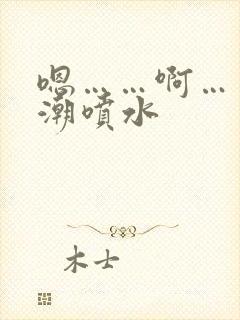 嗯……啊…
潮噴水
木士